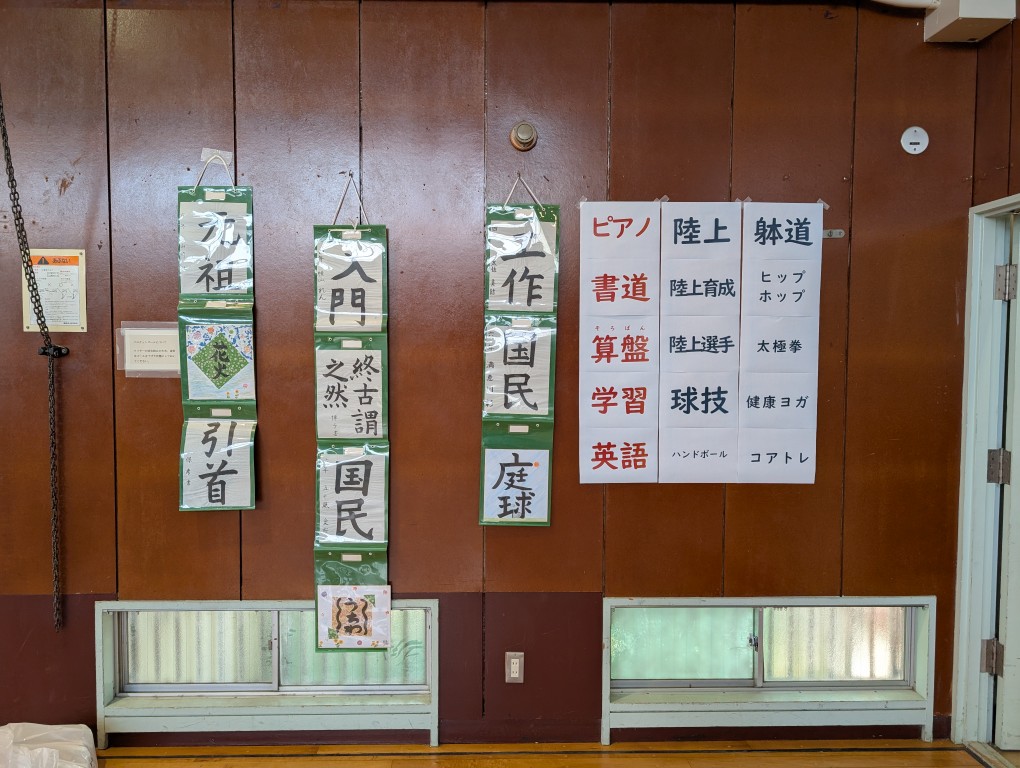 あぶない
元祖
花火
引首
入門
終古謂
之然
国民
うちわ
工作
国民
庭球
ピアノ
書道
そろばん
算盤
学習
英語
陸上
陸上育成
陸上選手
球技
ハンドボール
躰道
ヒップ
ホップ
太極拳
健康ヨガ
コアトレ